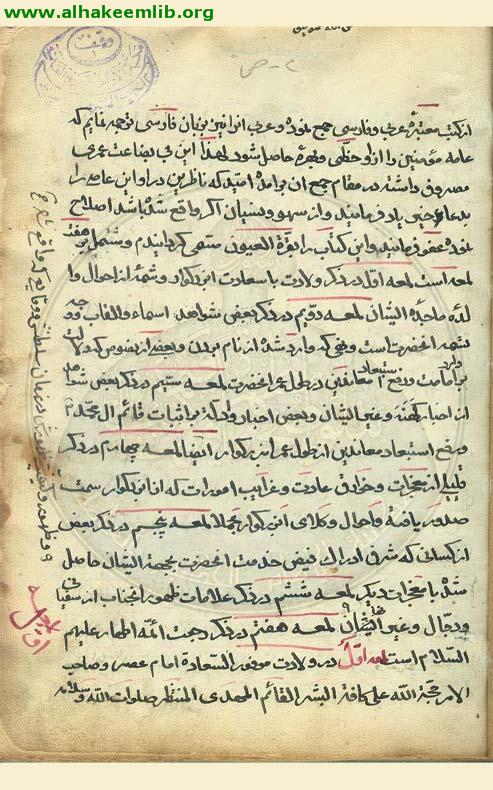 www.alhakeemlib.org
از کتب معتبره عربی و فارسی جمع نموده و عربی انرا نیز بزبان فارسی ترجمه نمایم که
عامه مؤمنین را از او حظی و بهره حاصل شود لهذا این بی بضاعت عمری
مصروف داشته در مقام جمع ان برامده امید که ناظرین در او این عاصی را
بدعای خیر یاد فرمایند و از سهو و نسیان اگر واقع شده باشد اصلاح
نموده عفو فرمایند و این کتاب را بقرة العیون مسمی گردانیدم و مشتمل بر هفت
لمعه است لمعه اول در ذکر ولادت با سعادت ان بزرگوار و شمهٔ از احوال وا
لدهٔ ماجدهٔ ایشان لمعه دویم در ذکر بعض شواهد اسماء و القاب و وجه
تسمیه انحضرت است و نهی که وارد شده از نام بردن و بعضی از نصوص که دلالت دارد
بر امامت و رفع استبعاد معاندین در طول عمر انحضرت لمعه سیم در ذکر بعض
از اخبار کهنه و غیر ایشان و بعض اخبار و ادله بر اثبات قائم ال محمد
و رفع استبعاد معاندین از طول عمر ان بزرگوار ایضا لمعه چهارم در ذکر
قلیلی از معجزات و خوارق عادت و غرایب امورات که از ان بزرگوار سمت
صدور یافته و احوال وکلای ان بزرگوار مجملا لمعه پنجم در ذکر بعض
از کسانی که شرف ادراک فیض خدمت انحضرت بجهة ایشان حاصل
شده با معجزات دیگر لمعه ششم در ذکر علامات ظهور انجناب از سفیانی
و دجال و غیر ایشان لمعه هفتم در ذکر رجعت ائمه اطهار علیهم
السلام است لمعه اول در ولادت موفور السعادة امام عصر و صاحب
الامر حجة الله علی کافة البشر القائم المهدی المنتظر صلوات الله و سلامه